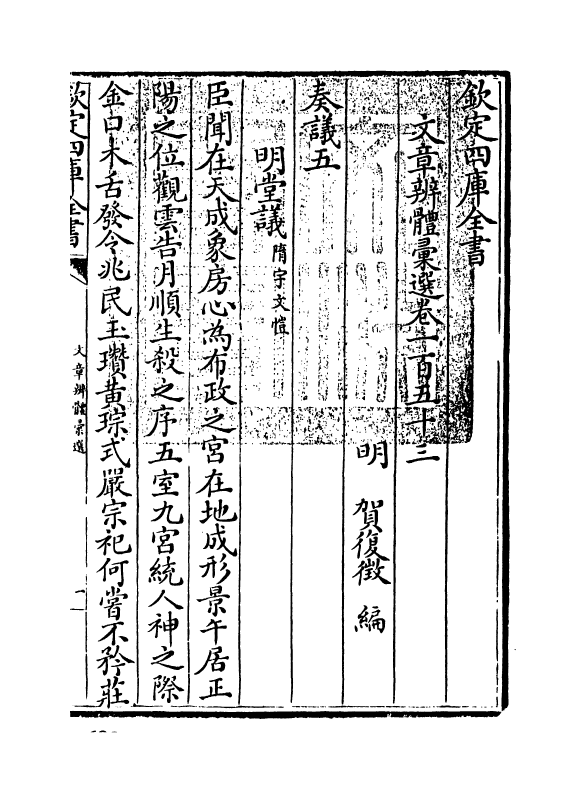 欽定四庫全書
文章辨體彙選卷一百五十三
明 賀復徵 編
奏議五
明堂議隋宇文愷
臣聞在天成象房心為布政之宮在地成形景午居正
陽之位觀雲告月順生殺之序五室九宮統人神之際
金口木舌發令兆民玉瓚黃琮式嚴宗祀何嘗不矜莊
欽定四庫全書
文章辨體彙選